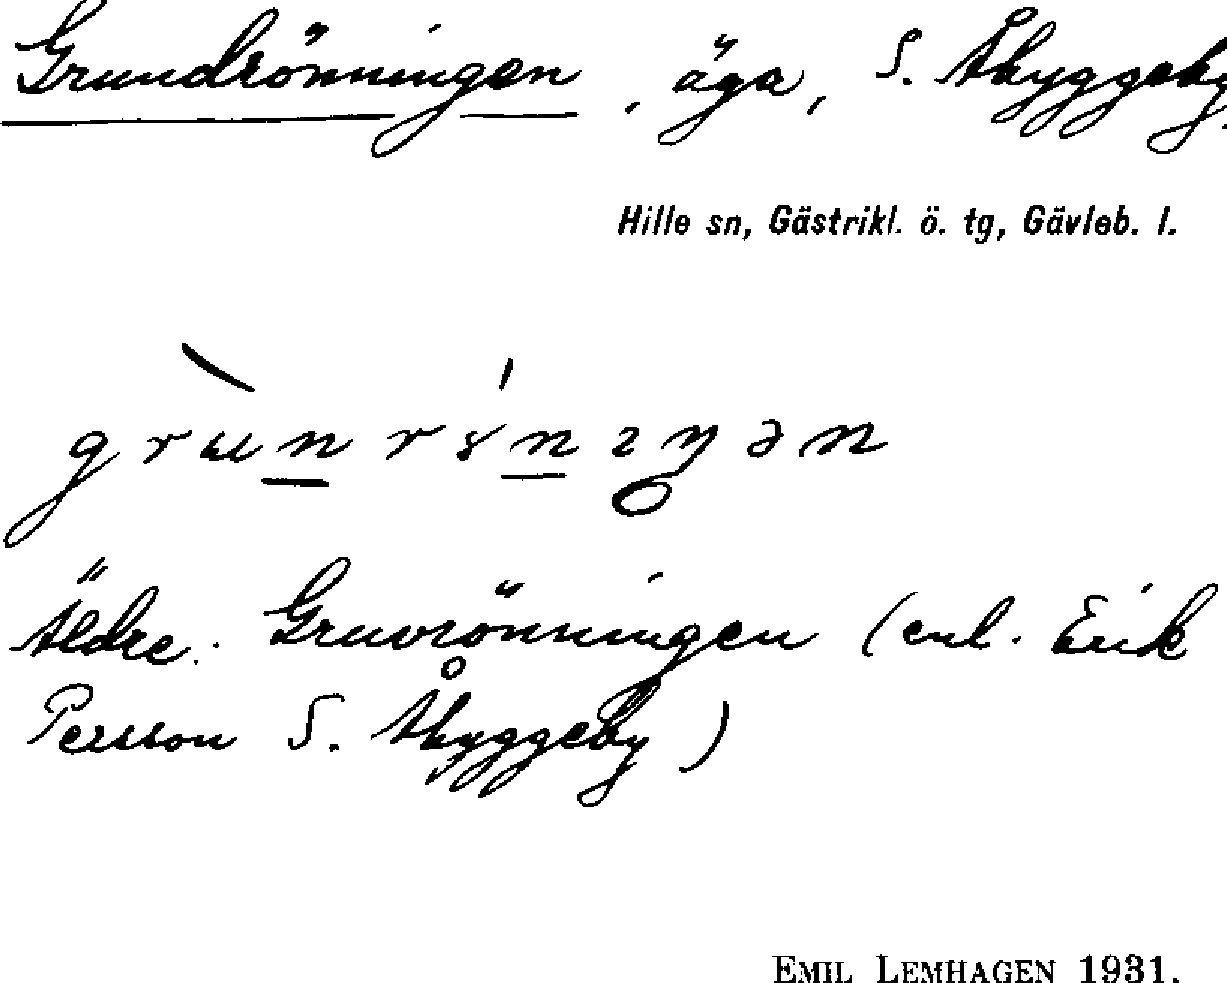 Grundrönningen, äga, S. Åbyggeby.
Hille sn, Gästrikl. ö. tg, Gävleb. l.
Äldre: Gruvrönningen (enl. Erik
Persson S. Åbyggeby)
EMIL LEMHAGEN 1931.